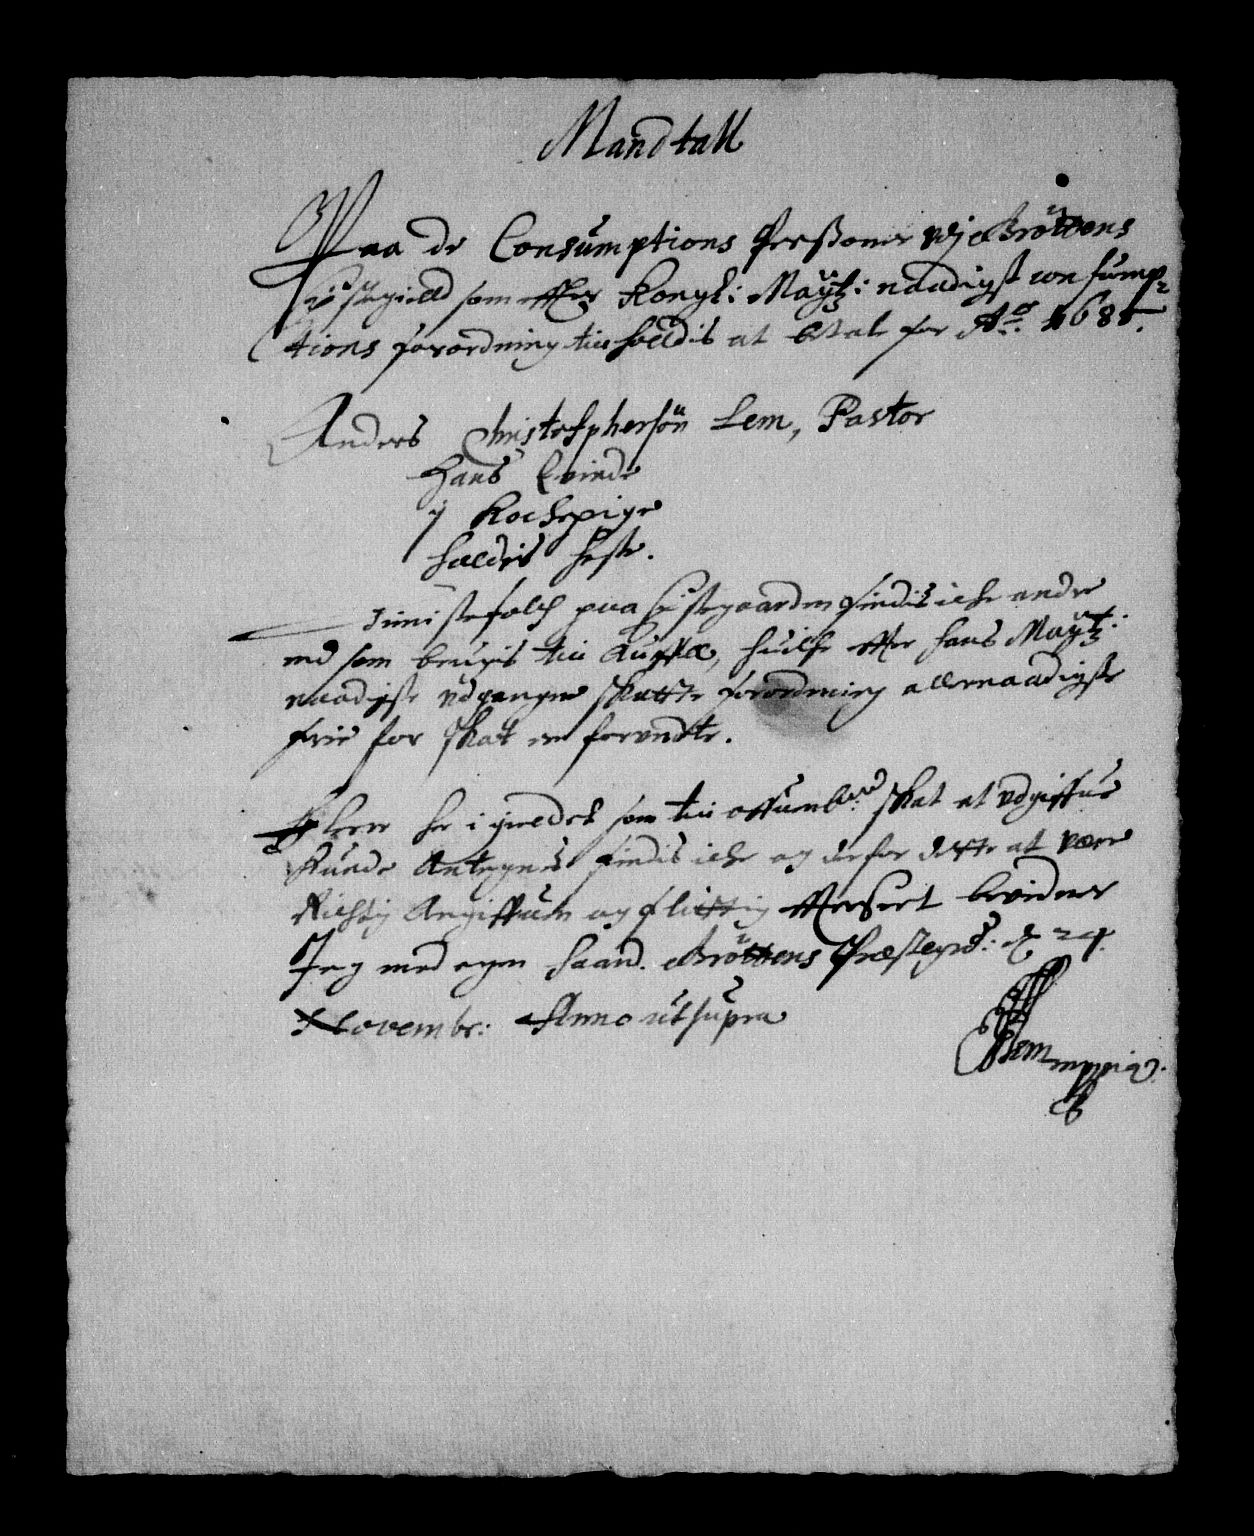 Mandtall
Paa de Consumptions Perßoner vdj Bröttens
Præstegield som effter Kongl: Maÿtz: naadigst consump-
tions forordning tilholdis at betale for Ao: 1685.
Anders Christophersön Lem, Pastor
Hans Qvinde
j Kockepige
holdis heste.
Tienistefolch paa Præstegaarden findis iche andre
end som brugis till Auffle, huilche effter hans Maÿtz:
naadigste vdgangne skatte forordning allernaadigste
frie for skat er forundte.
Flere her i gieldet som till offuenber: skat at vdgiffue
kunde Antegnes findis iche og derfor dette at vere
Richtig Angiffuen og flittig effterseet bevidner
Jeg med egen haand. Bröttens Præstegrd: d 24
Novembr: Anno ut supra
Lem
mppria.